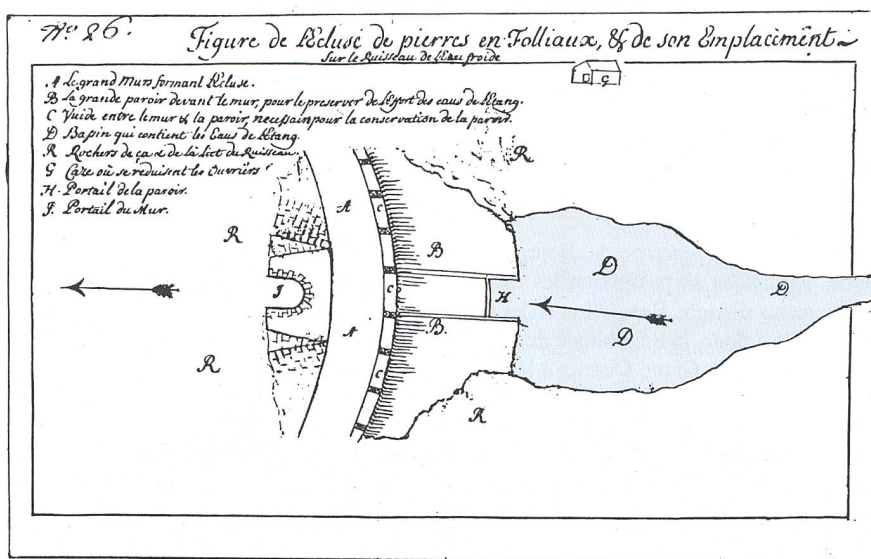 No. 26.
Figure de l'Ecluse de pierres en Folliaux, & de son Emplacement
Sur le Ruisseau de l'Eau froide
A Le grand Murs formant l'Ecluse.
B La grande paroir devant le mur, pour le preserver de l'effort des eaus de l'Etang.
C Vuide entre le mur & la paroir, necessair pour la conservation de la paroir.
D Bassin qui contient les Eaus de l'Etang.
R Rochers de ça & de là lict du Ruisseau.
G Caze où se reduisent les Ouvriers
H. Portail de la paroir.
J. Portail du Mur.
G
R
A
C
R
B
D
J
C
H
D
A
B.
D
R
C
R